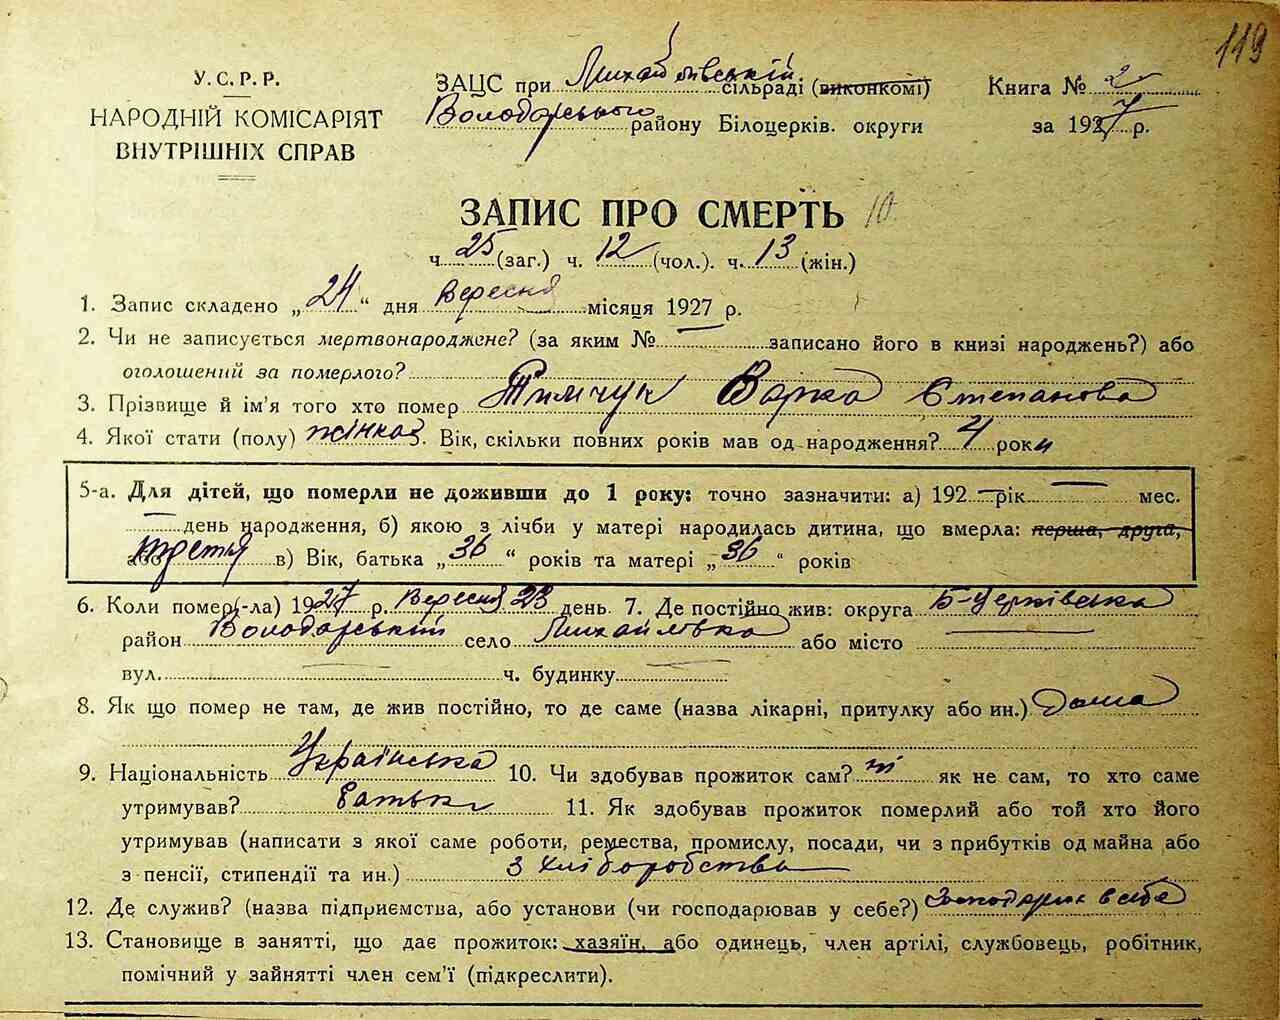 119
У.С.Р.Р.
НАРОДНІЙ КОМІСАРІЯТ
ВНУТРІШНІХ СПРАВ
ЗАЦС при Михайлівській сільраді (виконкомі)
Володарського району Білоцерків. округи
Книга № 2
за 1927 р.
ЗАПИС ПРО СМЕРТЬ 10
ч. 25 (заг.) ч. 12 (чол.). ч. 13 (жін.)
1. Запис складено „24“ дня Вересня місяця 1927 р.
2. Чи не записується мертвонароджене? (за яким № — записано його в книзі народжень?) або
оголошений за померлого?
3. Прізвище й ім'я того хто помер Тимчук Варка Степанова
4. Якої статі (полу) жінка. Вік, скільки повних років мав од народження? 4 роки
5-а. Для дітей, що померли не доживши до 1 року: точно зазначити: а) 192 — рік — мес.
— день народження, б) якою з лічби у матері народилась дитина, що вмерла: перша, друга,
або третя в) Вік, батька „36“ років та матері „36“ років
6. Коли помер(-ла) 1927 р. Вересня 23 день. 7. Де постійно жив: округа Б-Церківська
район Володарський село Михайлівка або місто —
вул. — ч. будинку —
8. Як що помер не там, де жив постійно, то де саме (назва лікарні, притулку або ин.) Дома
9. Національність Українська 10. Чи здобував прожиток сам? ні як не сам, то хто саме
утримував? Батьки 11. Як здобував прожиток померлий або той хто його
утримував (написати з якої саме роботи, ремества, промислу, посади, чи з прибутків од майна або
з пенсії, стипендії та ин.) З хліборобства
12. Де служив? (назва підприємства, або установи (чи господарював у себе?) Господарював в себе
13. Становище в занятті, що дає прожиток: хазяїн, або одинець, член артілі, службовець, робітник,
помічний у зайнятті член сем'ї (підкреслити).